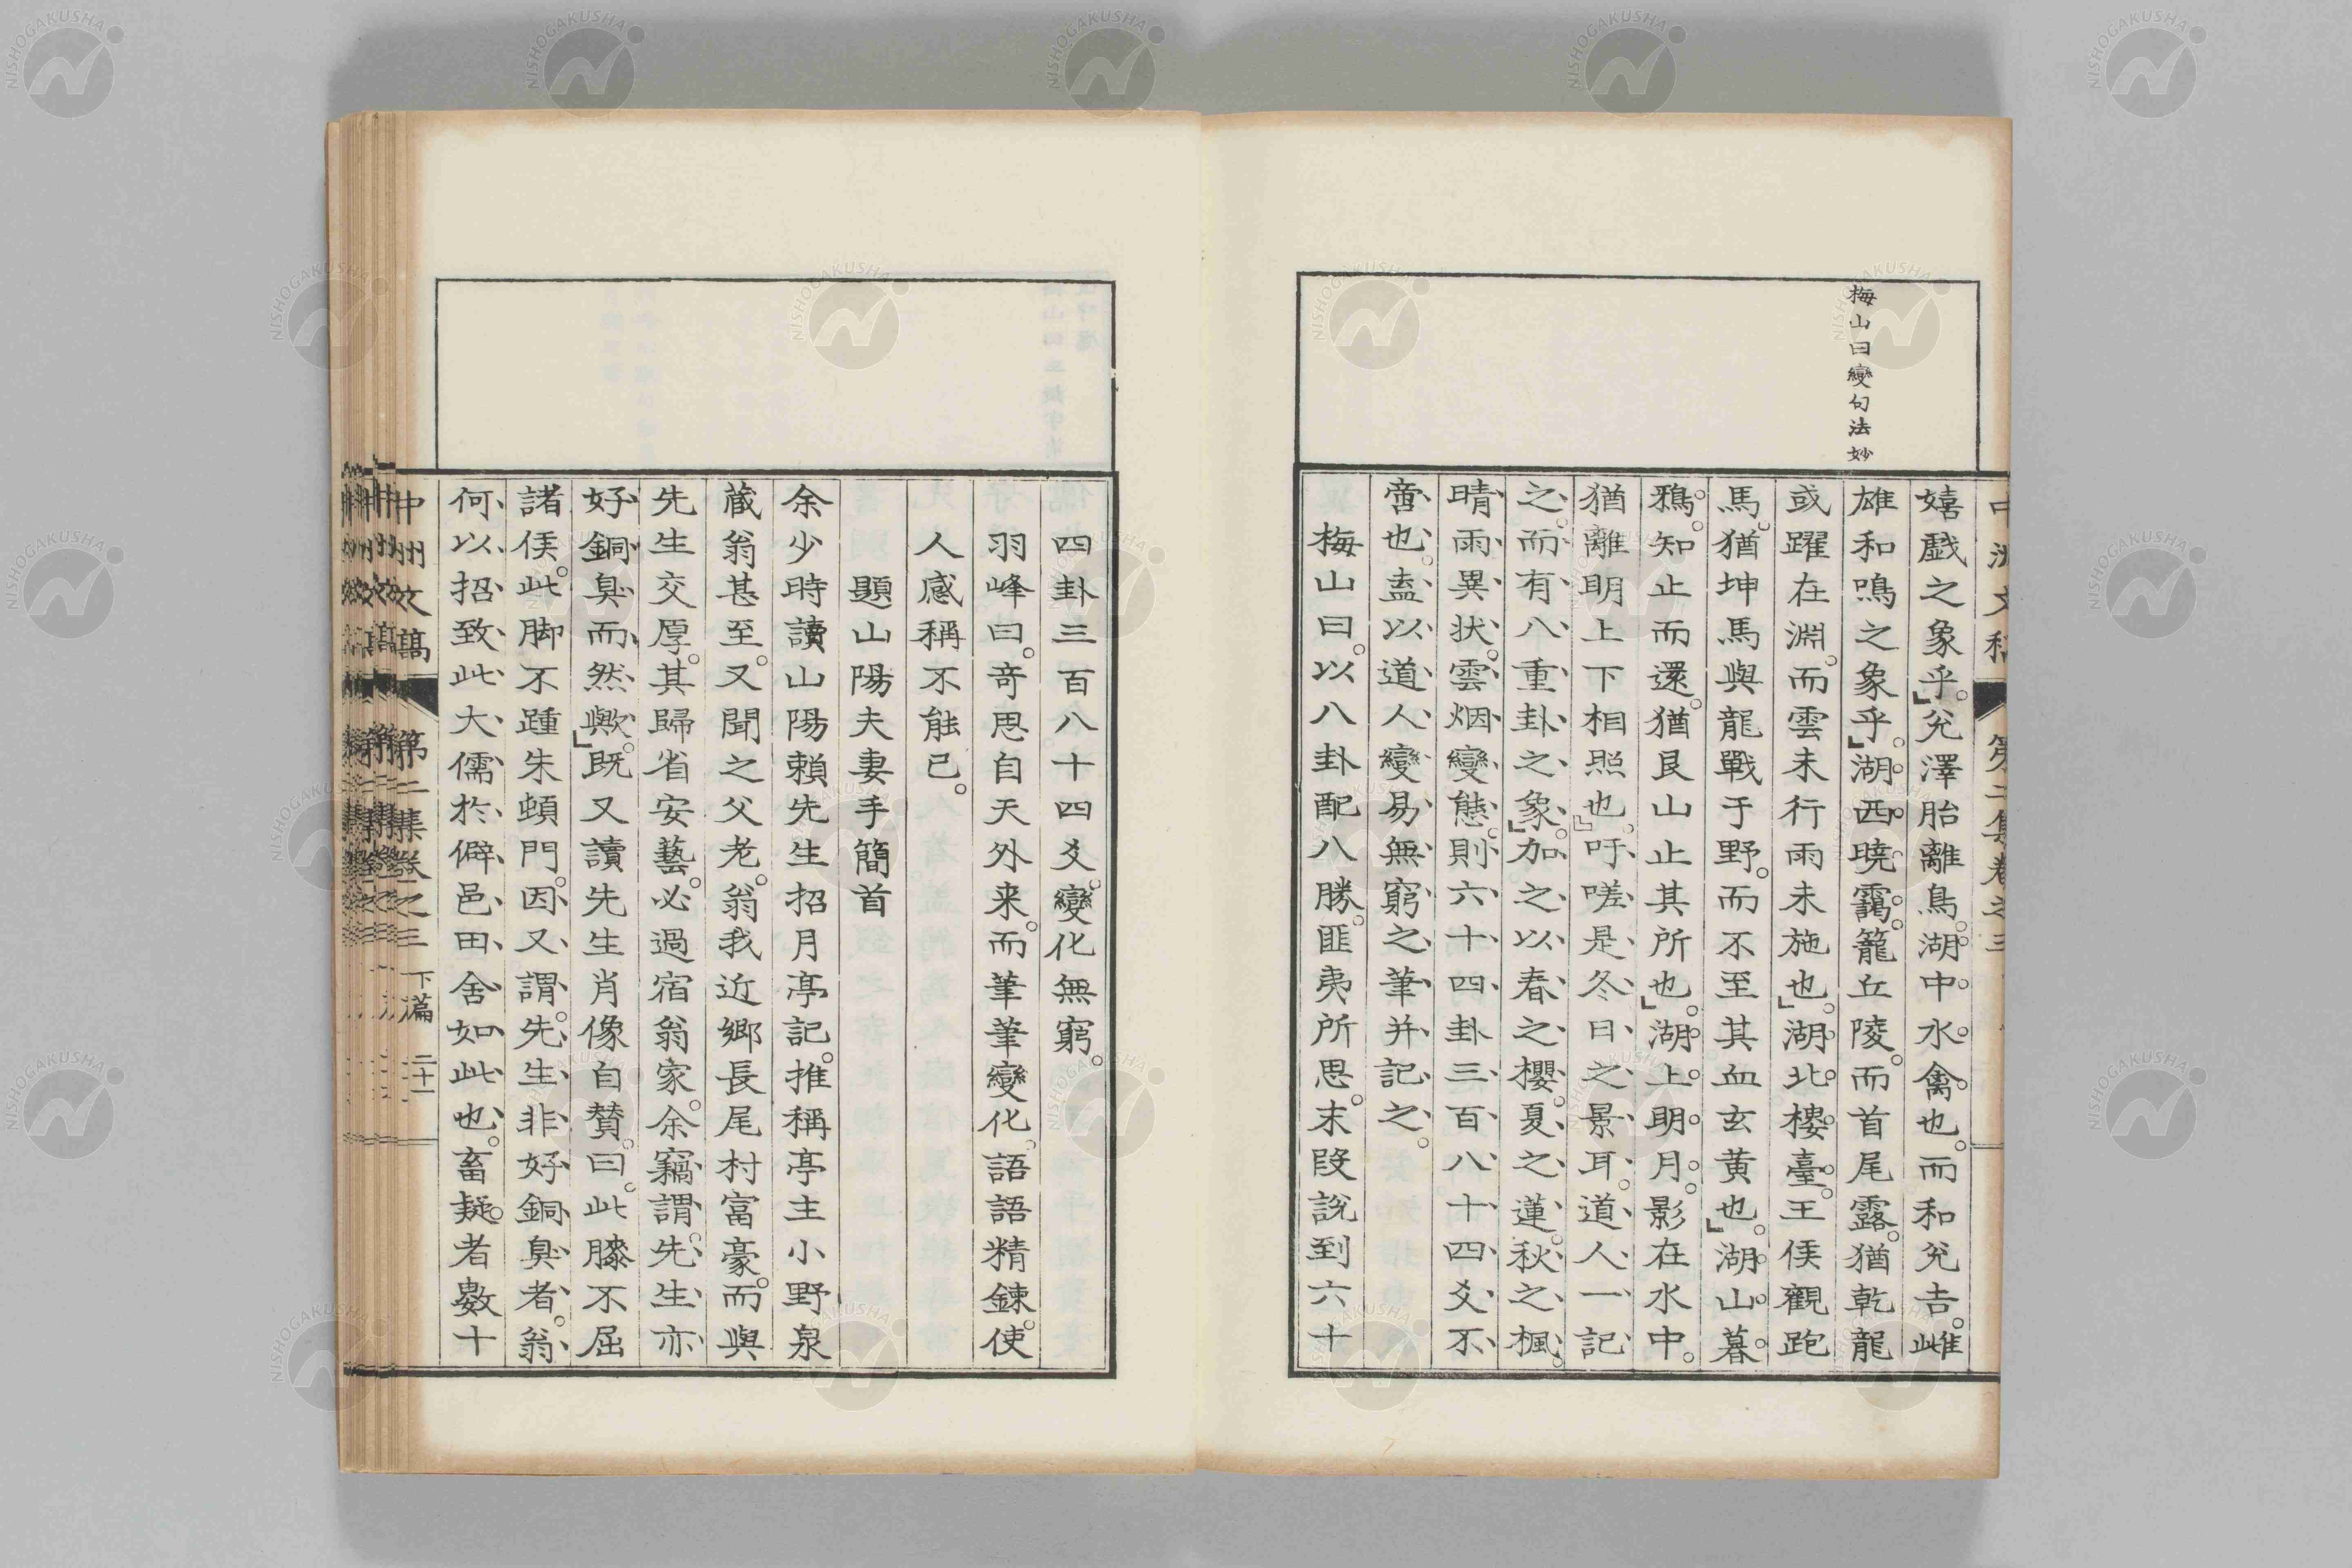 梅山曰變句法妙
中洲文稿 第二集卷之三
嬉戲之象乎。兌澤胎離鳥。湖中水禽也。而和兌吉。雌
雄和鳴之象乎。湖西曉靄。籠丘陵。而首尾露。猶乾龍
或躍在淵。而雲未行雨未施也。湖北樓臺。王侯觀跑
馬。猶坤馬與龍戰于野。而不至其血玄黄也。湖山暮
鴉。知止而還。猶艮山止其所也。湖上明月。影在水中。
猶離明上下相照也。吁嗟是冬日之景耳。道人一記
之。而有八重卦之象。加之以春之櫻。夏之蓮。秋之楓。
晴雨異状。雲烟變態。則六十四卦三百八十四爻。不
啻也。盍以道人變易無窮之筆并記之。
梅山曰。以八卦配八勝。匪夷所思。末段說到六十
四卦三百八十四爻。變化無窮。
羽峰曰。奇思自天外来。而筆筆變化。語語精錬。使
人感稱不能已。
題山陽夫妻手簡首
余少時讀山陽頼先生招月亭記。推稱亭主小野泉
蔵翁甚至。又聞之父老。翁我近郷長尾村富豪。而與
先生交厚。其歸省安藝。必過宿翁家。余竊謂。先生亦
好銅臭而然歟。既又讀先生肖像自賛。曰。此膝不屈
諸侯。此脚不踵朱頓門。因又謂。先生非好銅臭者。翁
何以招致此大儒於僻邑田舍如此也。畜疑者數十
中州文稿 第二集卷之三 下篇 二十一
NISHOGAKUSHA